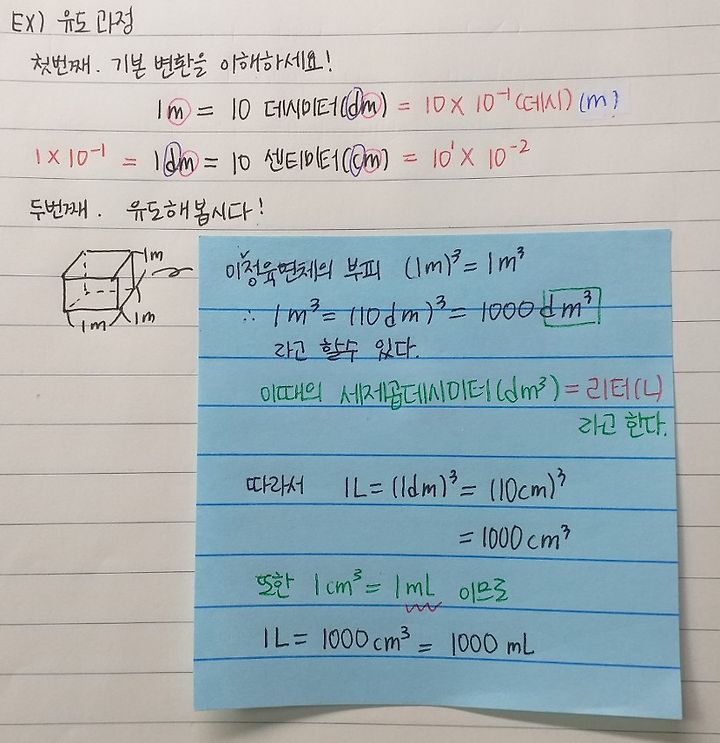 EX) 유도 과정
첫번째. 기본 변환을 이해하세요!
1m = 10 데시미터(dm) = 10 × 10⁻¹(데시) (m)
1 × 10⁻¹ = 1dm = 10 센티미터(cm) = 10¹ × 10⁻²
두번째. 유도해봅시다!
1m
1m
1m
이 정육면체의 부피 (1m)³ = 1m³
∴ 1m³ = (10dm)³ = 1000 dm³
라고 할수 있다.
이때의 세제곱데시미터(dm³) = 리터(L)
라고 한다.
따라서 1L = (1dm)³ = (10cm)³
= 1000 cm³
또한 1cm³ = 1mL 이므로
1L = 1000 cm³ = 1000 mL